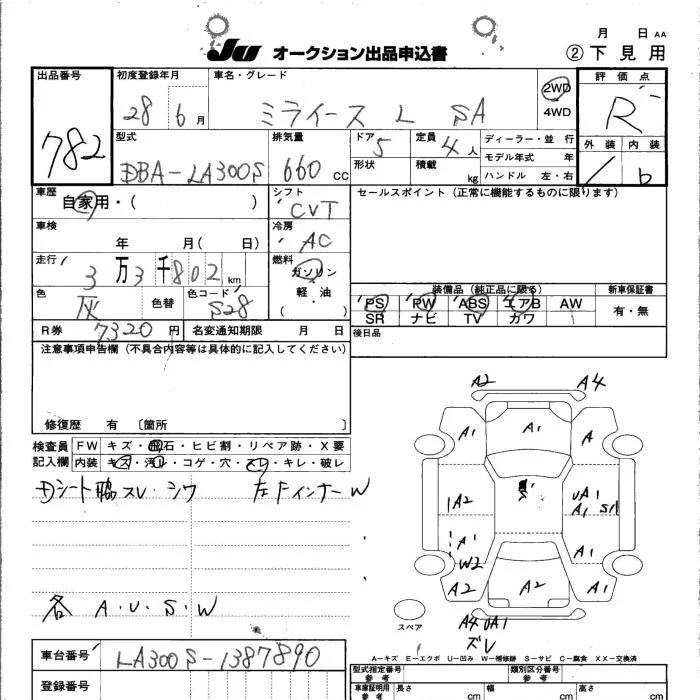 月 日 AA
JU オークション出品申込書 ② 下見用
出品番号 初度登録年月 車名・グレード 評価点
782 28 6月 ミライース L SA 2WD 4WD R
型式 排気量 ドア 5 定員 4人 ディーラー・並 行 外装 内装
DBA-LA300S 660 cc 形状 積載 kg モデル年式 年
ハンドル 左・右 b
車歴 自家用・( ) シフト CVT セールスポイント (正常に機能するものに限ります)
車検 年 月( 日) 冷房 AC
走行 3万3千802km 燃料 ガソリン
軽・油
( )
色 灰 色替 色コード S28
装備品 (純正品に限る) 新車保証書
PS PW ABS エアB AW 有・無
SR ナビ TV カワ
R券 7320円 名変通知期限 月 日 後日品
注意事項申告欄 (不具合内容等は具体的に記入してください)
修復歴 有 〔箇所 〕
検査員 FW キズ・飛石・ヒビ割・リペア跡・X要
記入欄 内装 キズ・汚レ・コゲ・穴・スレ・キレ・破レ
シート脇スレ・シワ 左Fインナー W
各 A・U・S・W
A2 A4
A1 A1 A
S
A2 UA1
A1 S1
A1 A1
W2
A2 A2 A1
スペア A4 UA1
ズレ
A-キズ E-エクボ U-凹み W-補修跡 S-サビ C-腐食 XX-交換済
車台番号 LA300S-1387890
登録番号
型式指定番号 参考 類別区分番号 参考
車庫証明用 参考 長さ cm 幅 cm 高さ cm